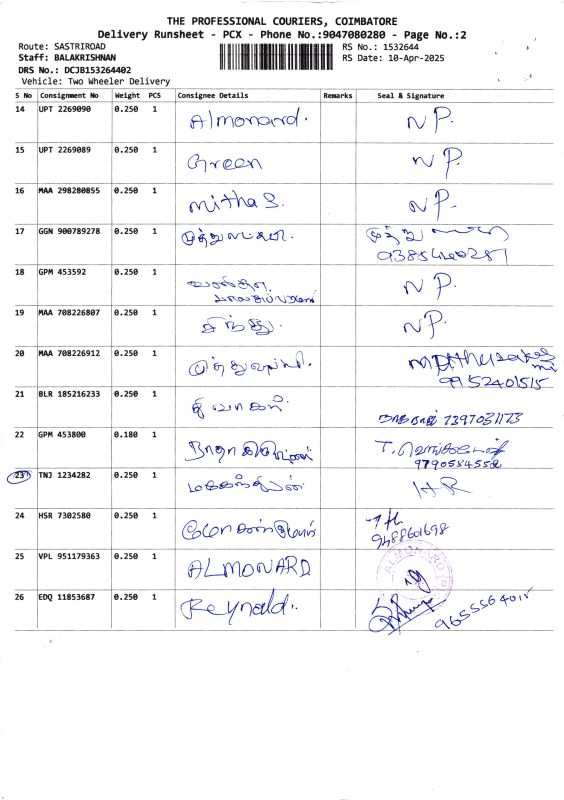 THE PROFESSIONAL COURIERS, COIMBATORE
Delivery Runsheet - PCX - Phone No.:9047080280 - Page No.:2
Route: SASTRIROAD RS No.: 1532644
Staff: BALAKRISHNAN RS Date: 10-Apr-2025
DRS No.: DCJB153264402
Vehicle: Two Wheeler Delivery
S No Consignment No Weight PCS Consignee Details Remarks Seal & Signature
14 UPT 2269090 0.250 1 Almonard. NP.
15 UPT 2269089 0.250 1 Green NP.
16 MAA 298280855 0.250 1 Mitha S. NP.
17 GGN 900789278 0.250 1 முத்துலட்சுமி. முத்து
18 GPM 453592 0.250 1 NP.
19 MAA 708226807 0.250 1 சிந்து. NP.
20 MAA 708226912 0.250 1
9952401515
21 BLR 185216233 0.250 1 7397031173
22 GPM 453800 0.180 1
9790584558
23 TNJ 1234282 0.250 1 H R
24 HSR 7302580 0.250 1
9488601698
25 VPL 951179363 0.250 1 ALMONARD
26 EDQ 11853687 0.250 1 Reynald.. 9655564015